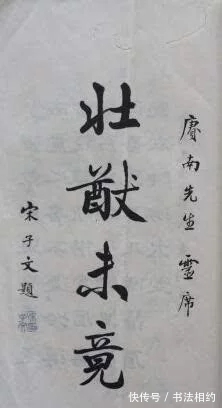 賡南先生靈席
壯猷未竟
宋子文題
快传号 / 书法相约